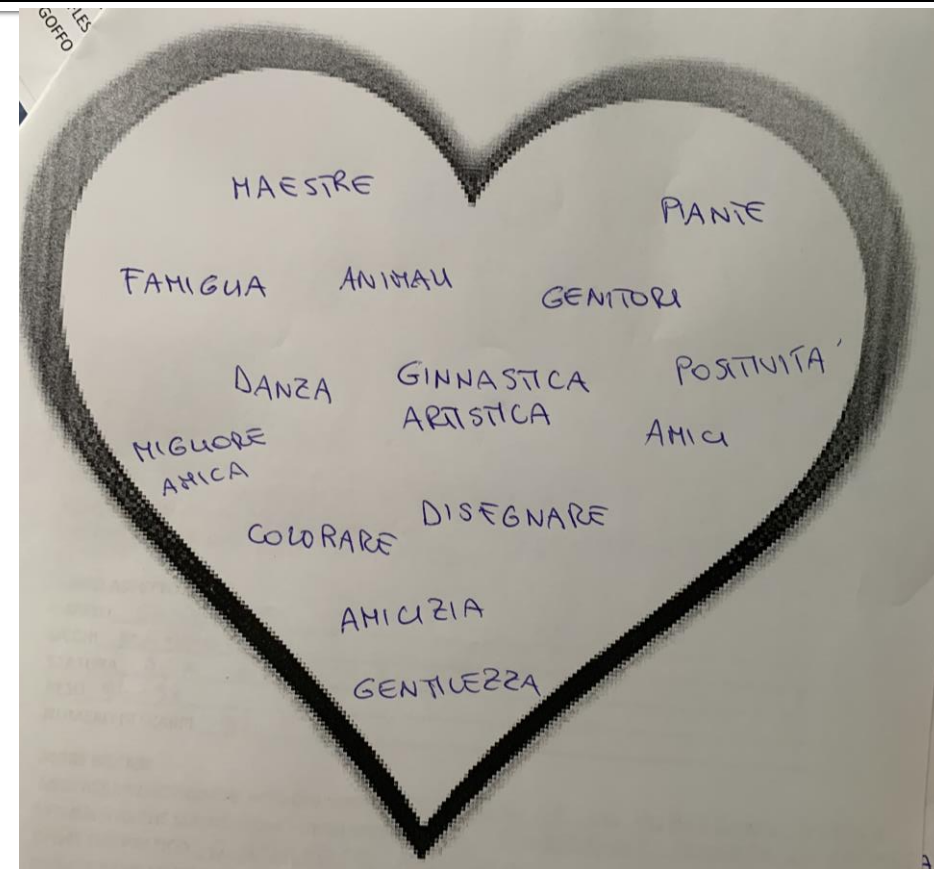 LES
GOFFO
MAESTRE
PIANTE
FAMIGLIA
ANIMALI
GENITORI
DANZA
GINNASTICA
ARTISTICA
POSITIVITA'
MIGLIORE
AMICA
AMICI
COLORARE
DISEGNARE
AMICIZIA
GENTILEZZA